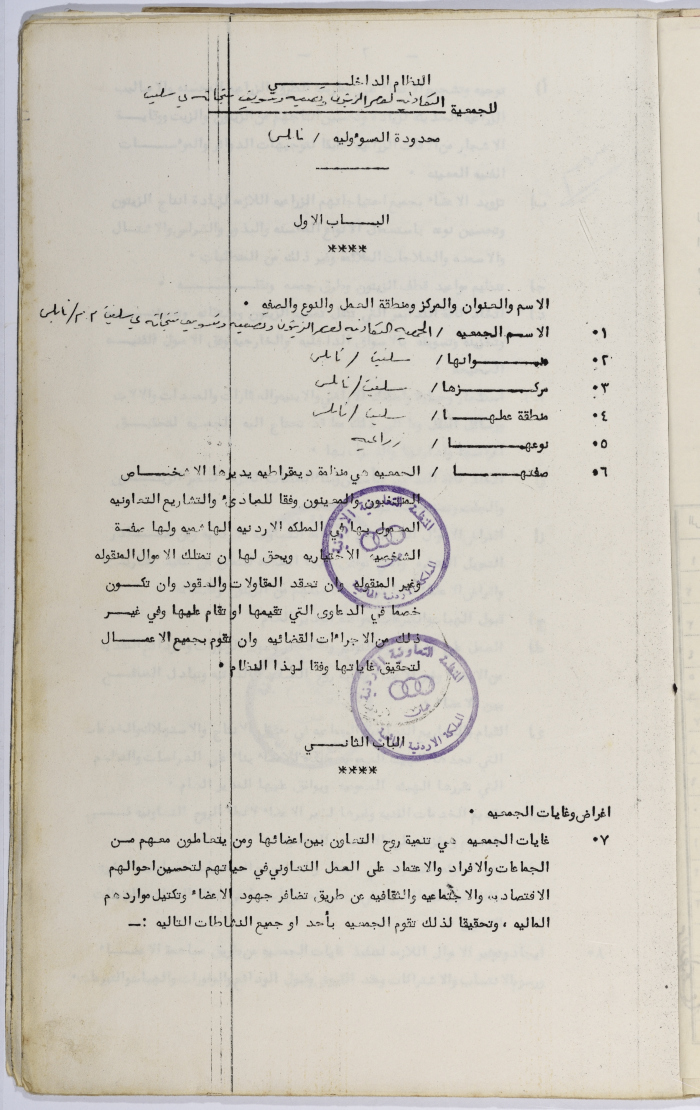 النظام الداخلي
للجمعية التعاونيه لعصر الزيتون وتصفيه وتسويق منتجاته في سلفيت
محدودة المسوءوليه / نابلس
الباب الاول
****
الاسم والعنوان والمركز ومنطقة العمل والنوع والصفه .
١. الاسم الجمعيه / الجمعيه التعاونيه لعصر الزيتون وتصفيه وتسويق منتجاته في سلفيت م.م/نابلس
٢. عنوانها / سلفيت / نابلس
٣. مركزها / سلفيت / نابلس
٤. منطقة عملها / سلفيت / نابلس
٥. نوعها / زراعيه
٦. صفتها / الجمعيه هي منظمة ديمقراطيه يديرها الاشخاص
المنتفعون والمعينون وفقا للمبادىء والتشاريع التعاونيه
المعمول بها في المملكه الاردنيه الهاشميه ولها صفة
الشخصية الاعتباريه ويحق لها ان تمتلك الاموال المنقوله
وغير المنقوله وان تعقد المقاولات والعقود وان تكون
خصما في الدعاوى التي تقيمها او تقام عليها وفي غير
ذلك من الاجراءات القضائيه وان تقوم بجميع الاعمال
لتحقيق غاياتها وفقا لهذا النظام .
المنظمة التعاونية الاردنية
عمان
المملكة الاردنية الهاشمية
المنظمة التعاونية الاردنية
عمان
المملكة الاردنية الهاشمية
الباب الثاني
****
اغراض وغايات الجمعيه .
٧. غايات الجمعيه هي تنمية روح التعاون بين اعضائها ومن يتعاملون معهم من
الجماعات والافراد والاعتماد على العمل التعاوني في حياتهم لتحسين احوالهم
الاقتصاديه والاجتماعيه والثقافيه عن طريق تضافر جهود الاعضاء وتكتيل مواردهم
الماليه ، وتحقيقا لذلك تقوم الجمعيه بأحد او جميع النشاطات التاليه :ــ